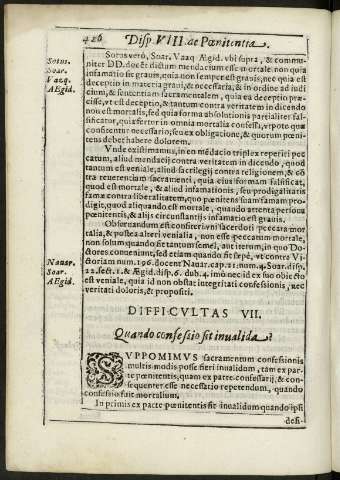 426 Disp. VIII. de Pœnitentia.
Sotus.
Soar.
Vazq.
AEgid.
Sotus verò, Soar. Vazq. Ægid. vbi supra, & commu-
niter DD. docēt dictum mendacium esse mortale, non quia
infamatio sit grauis, quia non semper est grauis; nec quia est
deceptio in materia graui, & necessaria, & in ordine ad iudi
cium, & sententiam sacramentalem, quia ea deceptio præ-
cise, vt est deceptio, & tantum contra veritatem in dicendo
non est mortalis, sed quia forma absolutionis partialiter fal-
sificatur, quia fertur in omnia mortalia confessa, vt pote quæ
confitentur necessario, seu ex obligatione, & quorum pœni-
tens debet habere dolorem.
Vnde existimamus, in eo mēdacio triplex reperiri pec
catum, aliud mendacij contra veritatem in dicendo, quod
tantum est veniale, aliud sacrilegij contra religionem, & cō
tra reuerentiam sacramenti, quia eius formam falsificat,
quod est mortale, & aliud infamationis, seu prodigalitatis
famæ contra liberalitatem, quo pœnitens suam famam pro-
digit, quod aliquando est mortale, quando attenta persona
pœnitentis, & alijs circunstantijs infamatio est grauis.
Obseruandum est confiteri vni sacerdoti peccata mor
talia, & postea alteri venialia, non esse peccatum mortale,
non solum quando sit tantum semel, aut iterum, in quo Do-
ctores conueniunt, sed etiam quando sit sepè, vt contra Vi-
Nauar.
Soar.
AEgid.
ctoriam num. 196. docent Nauar. cap. 21. num. 4. Soar. disp.
22. sect. 1. & Ægid. disp. 6. dub. 4. imò nec id ex suo obiecto
est veniale, quia id non obstat integritati confessionis, nec
veritati doloris, & propositi.
DIFFICVLTAS VII.
Quando confessio sit inualida?
SVPPONIMVS sacramentum confessionis
multis modis posse fieri inualidum, tam ex par
te pœnitentis, quam ex parte confessarij, & con
sequenter esse necessario repetendum, quando
confessio fuit mortalium.
In primis ex parte pœnitentis sit inualidum quando ipsi
desi-